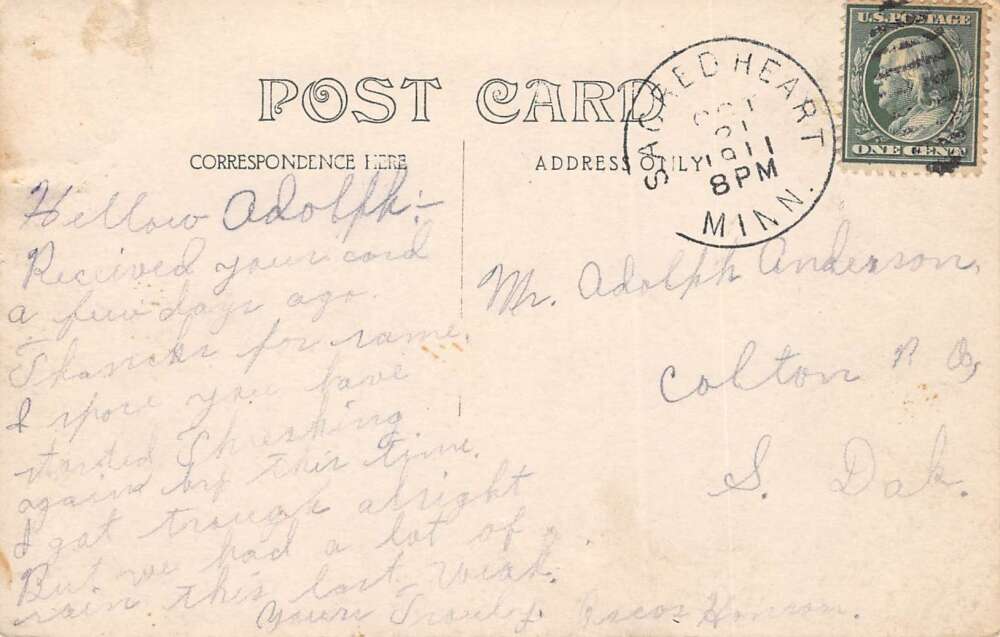 POST CARD
CORRESPONDENCE HERE
ADDRESS ONLY
SACRED HEART
OCT
1911
8 PM
MINN.
U.S. POSTAGE
ONE CENT
Hellow Adolph:-
Received your card
a few days ago.
Thancks for same.
I spose you have
started Threshing
again by this time.
I got trough alright
But we had a lot of
rain this last weak.
Yours Trouly.
Mr. Adolph Anderson,
Colton
S. Dak.